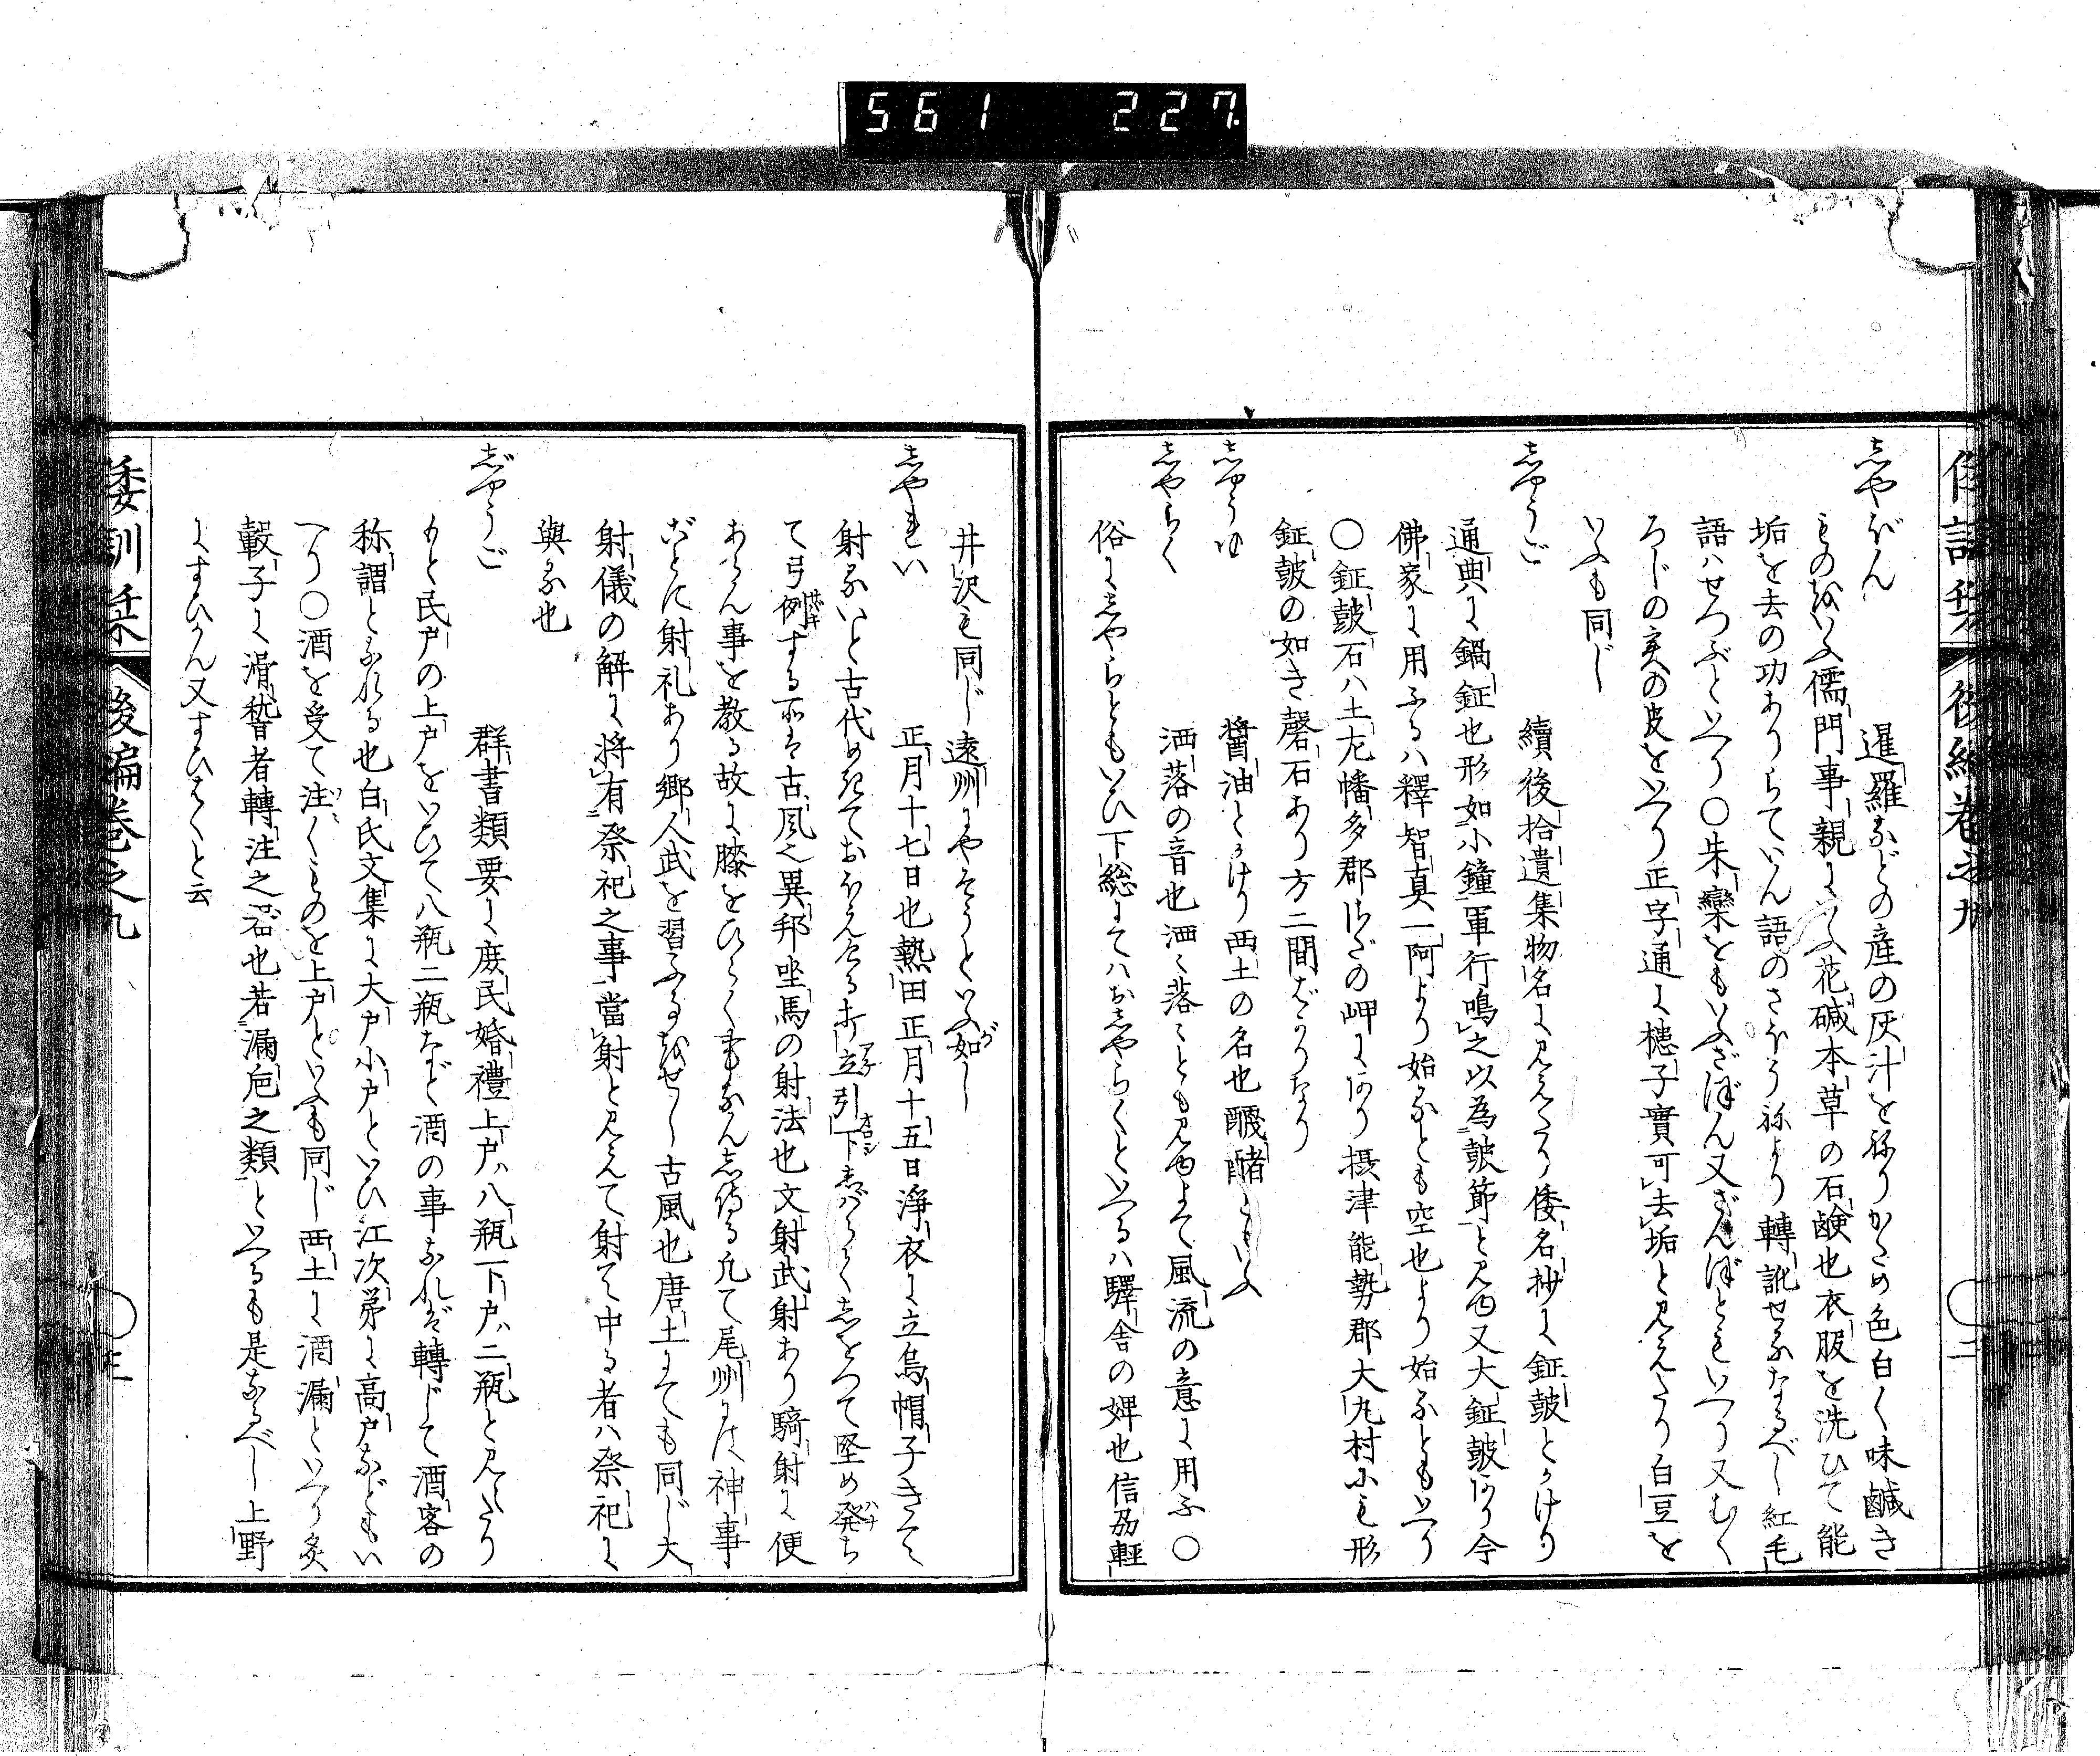 561 227
倭訓栞 後編巻之九
志やぼん 暹羅などの産の灰汁を祢りかため色白く味鹹き
ものをいふ儒門事親にいふ花碱本草の石鹸也衣服を洗ひて能
垢を去の功ありらていん語のさぼう祢より轉訛せるなるべし紅毛
語ハせつぶといへり○朱欒をもいふざぼん又ざんぼともいへり又むく
ろじの実の皮をいへり正字通に槵子實可去垢と見えたり白豆を
いふも同じ
志やうご 續後拾遺集物名に見えたり倭名抄に鉦皷とかけり
通典に鐲鉦也形如小鐘軍行鳴之以為皷節と見ゆ又大鉦皷あり今
佛家に用ふるハ釋智真一阿より始るとも空也より始るともいへり
○鉦皷石ハ土左幡多郡はたの岬にあり摂津能勢郡大丸村にも形
鉦皷の如き磬石あり方二間ばかりなり
志やうゆ 醤油とかけり西土の名也醆䤅ともいふ
志やらく 洒落の音也洒〻落〻とも見ゆよて風流の意に用ふ○
俗に志やらともいひ下総にてハお志やらくといへるハ驛舎の婢也信刕軽
井沢も同じ遠州にやそうといふが如し
志やれい 正月十七日也熱田正月十五日淨衣に立烏帽子きて
射るいと古代めきておぼえ侍る弟立引下志ばらく志をつて堅め発ち
て弓例する所は古風之異邦坐馬の射法也文射武射あり騎射に便
あらん事を教る故に膝をひらく事なん志侍る凡て尾州には神事
ごとに射礼あり郷人武を習ふるをせし古風也唐土にても同じ大
射儀の解に将有祭祀之事當射と見えて射て中る者ハ祭祀に
與る也
志やうご 群書類要に庶民婚禮上戸ハ八瓶下戸ハ二瓶と見えたり
もと民戸の上戸をいひて八瓶二瓶など酒の事なれば轉じて酒客の
称謂となれる也白氏文集に大戸小戸といひ江次第に高戸などもい
へり○酒を受て注くものを上戸といふも同じ西土に酒漏といへり炙
轂子に滑稽者轉注之器也若漏卮之類といへるも是なるべし上野
にすひかん又すひはくと云
倭訓栞 後編巻之九